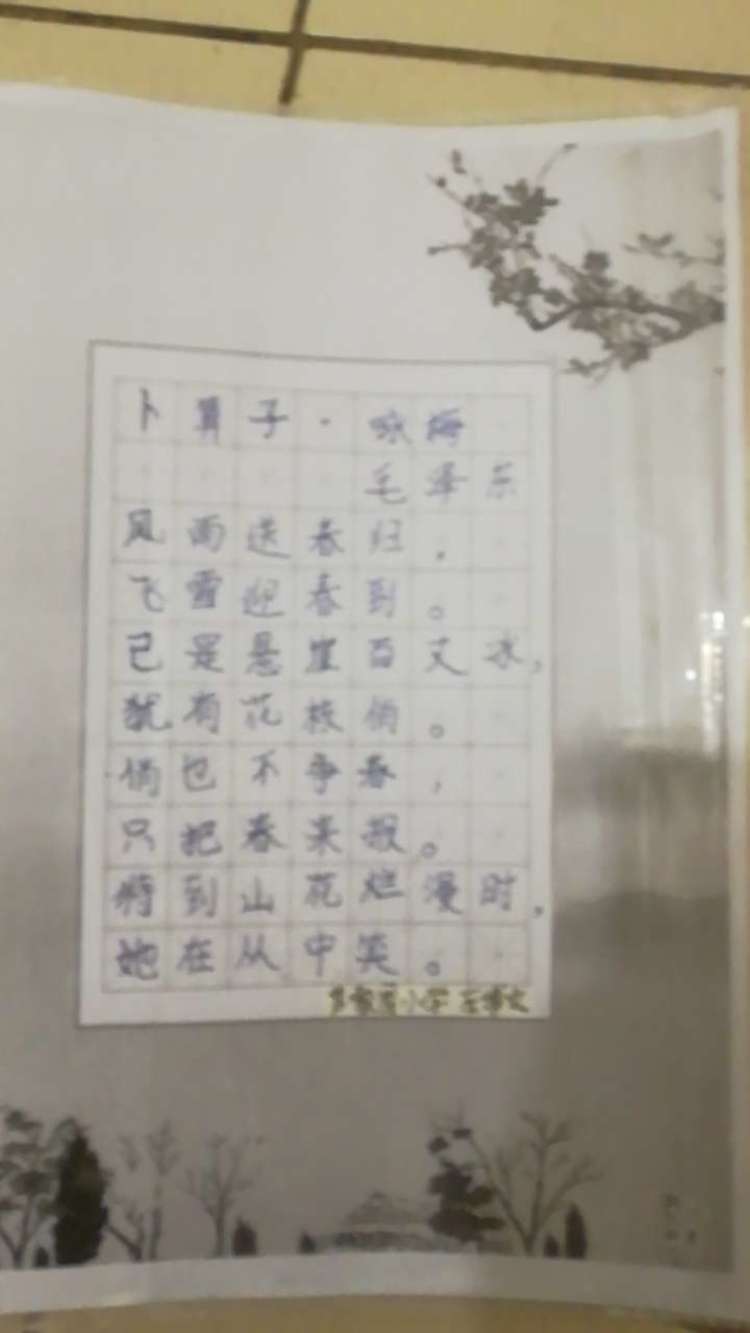 卜算子·咏梅
毛泽东
风雨送春归，
飞雪迎春到。
已是悬崖百丈冰，
犹有花枝俏。
俏也不争春，
只把春来报。
待到山花烂漫时，
她在从中笑。
小学